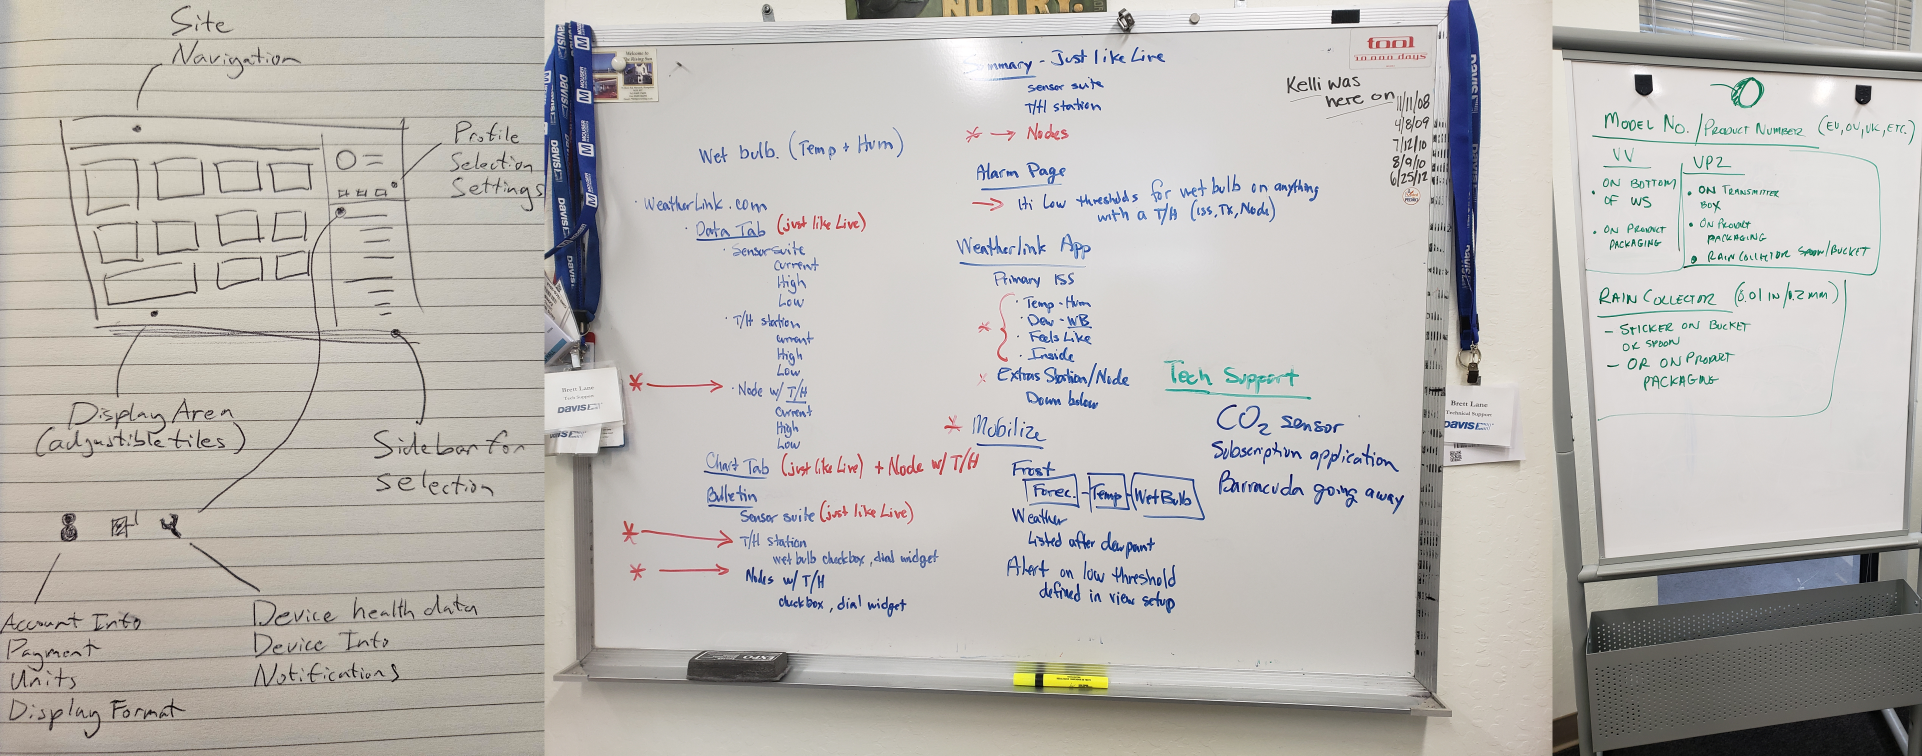 Site
Navigation
Profile
Selection
Settings
Display Area
(adjustible tiles)
Sidebar for
selection
Account Info
Payment
Units
Display Format
Device health data
Device Info
Notifications
NO TRY.
Summary - Just like Live
sensor suite
T/H station
* → Nodes
Wet bulb. (Temp + Hum)
· WeatherLink.com
· Data Tab (just like Live)
· Sensor suite
Current
High
Low
· T/H station
Current
High
Low
* → · Node w/ T/H
Current
High
Low
Chart Tab (just like Live) + Node w/ T/H
Bulletin
Sensor suite (just like Live)
* → T/H station
wet bulb checkbox, dial widget
* → Nodes w/ T/H
checkbox, dial widget
Alarm Page
→ Hi Low thresholds for wet bulb on anything
with a T/H (iss, Tx, Node)
Weatherlink App
Primary ISS
* { · Temp - Hum
· Dew - WB
· Feels Like
· Inside
* Extras Station/Node
Down below
* Mobilize
Frost
Forec. - Temp - Wet Bulb
Weather
Listed after dewpoint
Alert on low threshold
defined in view setup
tool
10,000 days
Kelli was
here on 11/11/08
4/8/09
7/12/10
8/9/10
6/25/12
Tech Support
CO2 sensor
Subscription application
Barracuda going away
Brett Lane
Tech Support
DAVIS
Brett Lane
Technical Support
DAVIS
DAVIS
MOUSER
EXPO
MODEL NO. / PRODUCT NUMBER (EU, OV, UK, ETC.)
VV
· ON BOTTOM
OF WS
· ON PRODUCT
PACKAGING
VP2
· ON TRANSMITTER
BOX
· ON PRODUCT
PACKAGING
· RAIN COLLECTOR SPOON/BUCKET
RAIN COLLECTOR (0.01 IN/0.2 MM)
- STICKER ON BUCKET
OR SPOON
- OR ON PRODUCT
PACKAGING